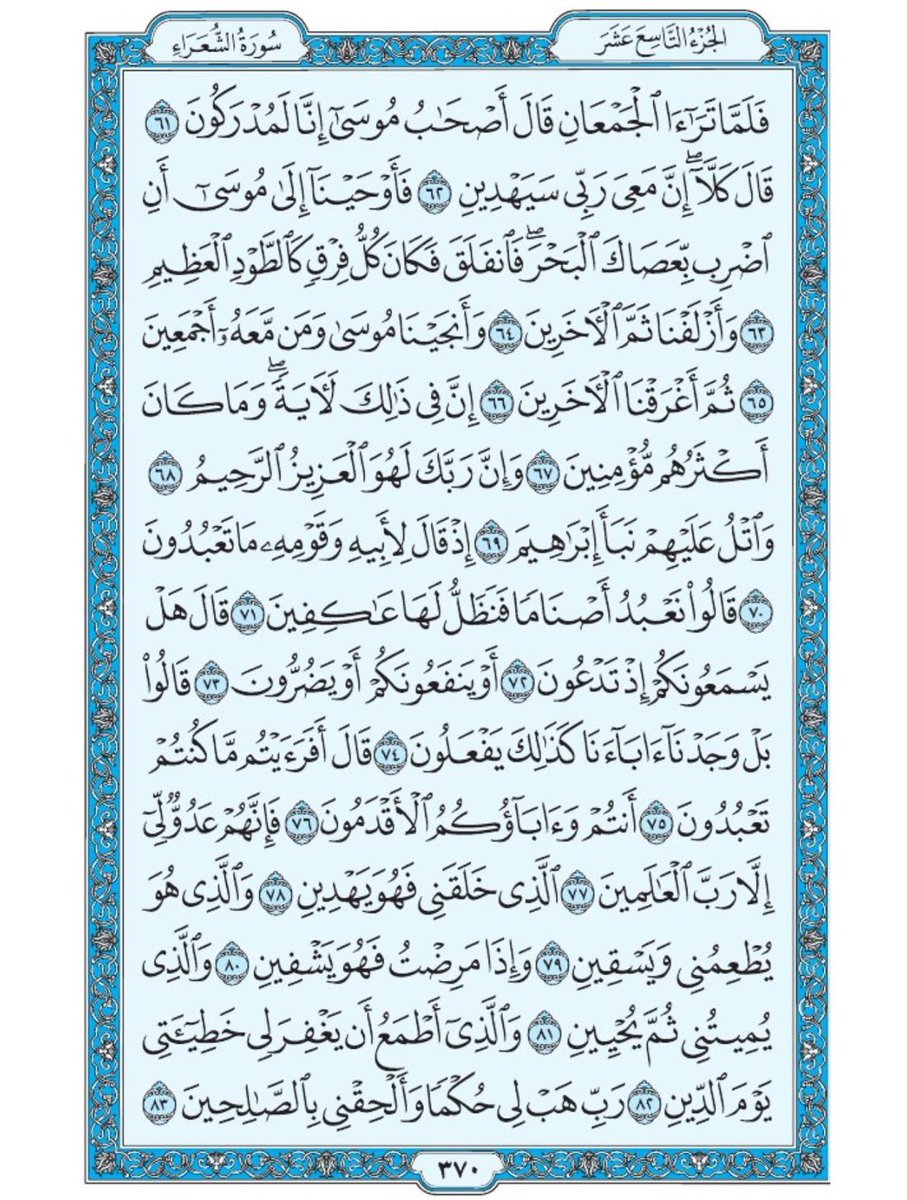 الجُزْءُ التَّاسِعَ عَشَرَ
سُورَةُ الشُّعَرَاءِ
فَلَمَّا تَرَٰٓءَا ٱلْجَمْعَانِ قَالَ أَصْحَـٰبُ مُوسَىٰٓ إِنَّا لَمُدْرَكُونَ ٦١
قَالَ كَلَّآ ۖ إِنَّ مَعِىَ رَبِّى سَيَهْدِينِ ٦٢ فَأَوْحَيْنَآ إِلَىٰ مُوسَىٰٓ أَنِ
ٱضْرِب بِّعَصَاكَ ٱلْبَحْرَ ۖ فَٱنفَلَقَ فَكَانَ كُلُّ فِرْقٍ كَٱلطَّوْدِ ٱلْعَظِيمِ
٦٣ وَأَزْلَفْنَا ثَمَّ ٱلْـَٔاخَرِينَ ٦٤ وَأَنجَيْنَا مُوسَىٰ وَمَن مَّعَهُۥٓ أَجْمَعِينَ
٦٥ ثُمَّ أَغْرَقْنَا ٱلْـَٔاخَرِينَ ٦٦ إِنَّ فِى ذَٰلِكَ لَـَٔايَةً ۖ وَمَا كَانَ
أَكْثَرُهُم مُّؤْمِنِينَ ٦٧ وَإِنَّ رَبَّكَ لَهُوَ ٱلْعَزِيزُ ٱلرَّحِيمُ ٦٨
وَٱتْلُ عَلَيْهِمْ نَبَأَ إِبْرَٰهِيمَ ٦٩ إِذْ قَالَ لِأَبِيهِ وَقَوْمِهِۦ مَا تَعْبُدُونَ
٧٠ قَالُوا۟ نَعْبُدُ أَصْنَامًا فَنَظَلُّ لَهَا عَـٰكِفِينَ ٧١ قَالَ هَلْ
يَسْمَعُونَكُمْ إِذْ تَدْعُونَ ٧٢ أَوْ يَنفَعُونَكُمْ أَوْ يَضُرُّونَ ٧٣ قَالُوا۟
بَلْ وَجَدْنَآ ءَابَآءَنَا كَذَٰلِكَ يَفْعَلُونَ ٧٤ قَالَ أَفَرَءَيْتُم مَّا كُنتُمْ
تَعْبُدُونَ ٧٥ أَنتُمْ وَءَابَآؤُكُمُ ٱلْأَقْدَمُونَ ٧٦ فَإِنَّهُمْ عَدُوٌّ لِّىٓ
إِلَّا رَبَّ ٱلْعَـٰلَمِينَ ٧٧ ٱلَّذِى خَلَقَنِى فَهُوَ يَهْدِينِ ٧٨ وَٱلَّذِى هُوَ
يُطْعِمُنِى وَيَسْقِينِ ٧٩ وَإِذَا مَرِضْتُ فَهُوَ يَشْفِينِ ٨٠ وَٱلَّذِى
يُمِيتُنِى ثُمَّ يُحْيِينِ ٨١ وَٱلَّذِىٓ أَطْمَعُ أَن يَغْفِرَ لِى خَطِيٓـَٔتِى
يَوْمَ ٱلدِّينِ ٨٢ رَبِّ هَبْ لِى حُكْمًا وَأَلْحِقْنِى بِٱلصَّـٰلِحِينَ ٨٣
٣٧٠